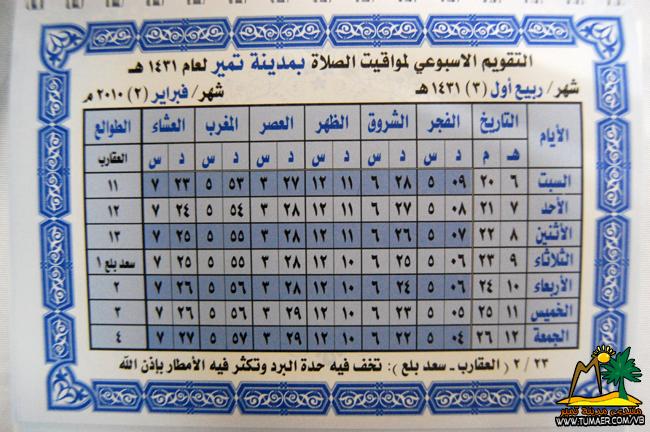 التقويم الاسبوعي لمواقيت الصلاة بمدينة تمير لعام ١٤٣١ هـ
شهر/ ربيع أول (٣) ١٤٣١ هـ شهر/ فبراير (٢) ٢٠١٠ م
الأيام التاريخ الفجر الشروق الظهر العصر المغرب العشاء الطوالع
هـ م د س د س د س د س د س د س العقارب
السبت ٦ ٢٠ ٠٩ ٥ ٢٨ ٦ ١١ ١٢ ٢٧ ٣ ٥٣ ٥ ٢٣ ٧ ١١
الأحد ٧ ٢١ ٠٨ ٥ ٢٧ ٦ ١١ ١٢ ٢٨ ٣ ٥٤ ٥ ٢٤ ٧ ١٢
الأثنين ٨ ٢٢ ٠٧ ٥ ٢٦ ٦ ١١ ١٢ ٢٨ ٣ ٥٥ ٥ ٢٥ ٧ ١٣
الثلاثاء ٩ ٢٣ ٠٦ ٥ ٢٥ ٦ ١٠ ١٢ ٢٨ ٣ ٥٥ ٥ ٢٥ ٧ سعد بلع ١
الأربعاء ١٠ ٢٤ ٠٦ ٥ ٢٤ ٦ ١٠ ١٢ ٢٨ ٣ ٥٦ ٥ ٢٦ ٧ ٢
الخميس ١١ ٢٥ ٠٥ ٥ ٢٣ ٦ ١٠ ١٢ ٢٩ ٣ ٥٦ ٥ ٢٦ ٧ ٣
الجمعة ١٢ ٢٦ ٠٤ ٥ ٢٢ ٦ ١٠ ١٢ ٢٩ ٣ ٥٧ ٥ ٢٧ ٧ ٤
٢٣ / ٢ ( العقارب ـ سعد بلع ) : تخف فيه حدة البرد وتكثر فيه الأمطار بإذن الله
منتدى مدينة تمير
WWW.TUMAER.COM/VB